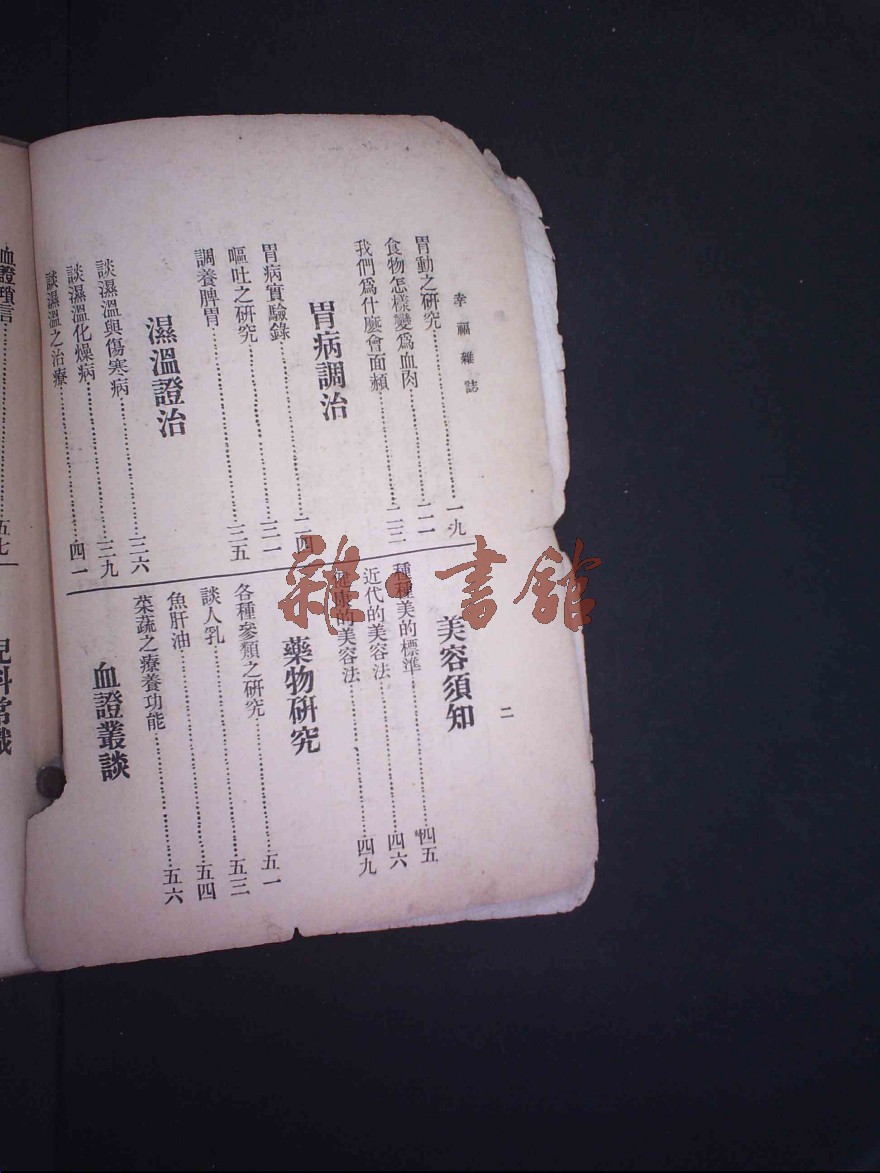 幸福雜誌
二
胃動之研究 一九
食物怎樣變爲血肉 二一
我們爲什麼會面頳 二三
胃病調治
胃病實驗錄 二四
嘔吐之研究 三一
調養脾胃 三五
濕溫證治
談濕溫與傷寒病 三六
談濕溫化燥病 三九
談濕溫之治療 四一
美容須知
種種美的標準 四五
近代的美容法 四六
健康的美容法 四九
藥物研究
各種參類之研究 五一
談人乳 五三
魚肝油 五四
菜蔬之療養功能 五六
血證叢談
血證瑣言 五七
兒科常識
雜·書館